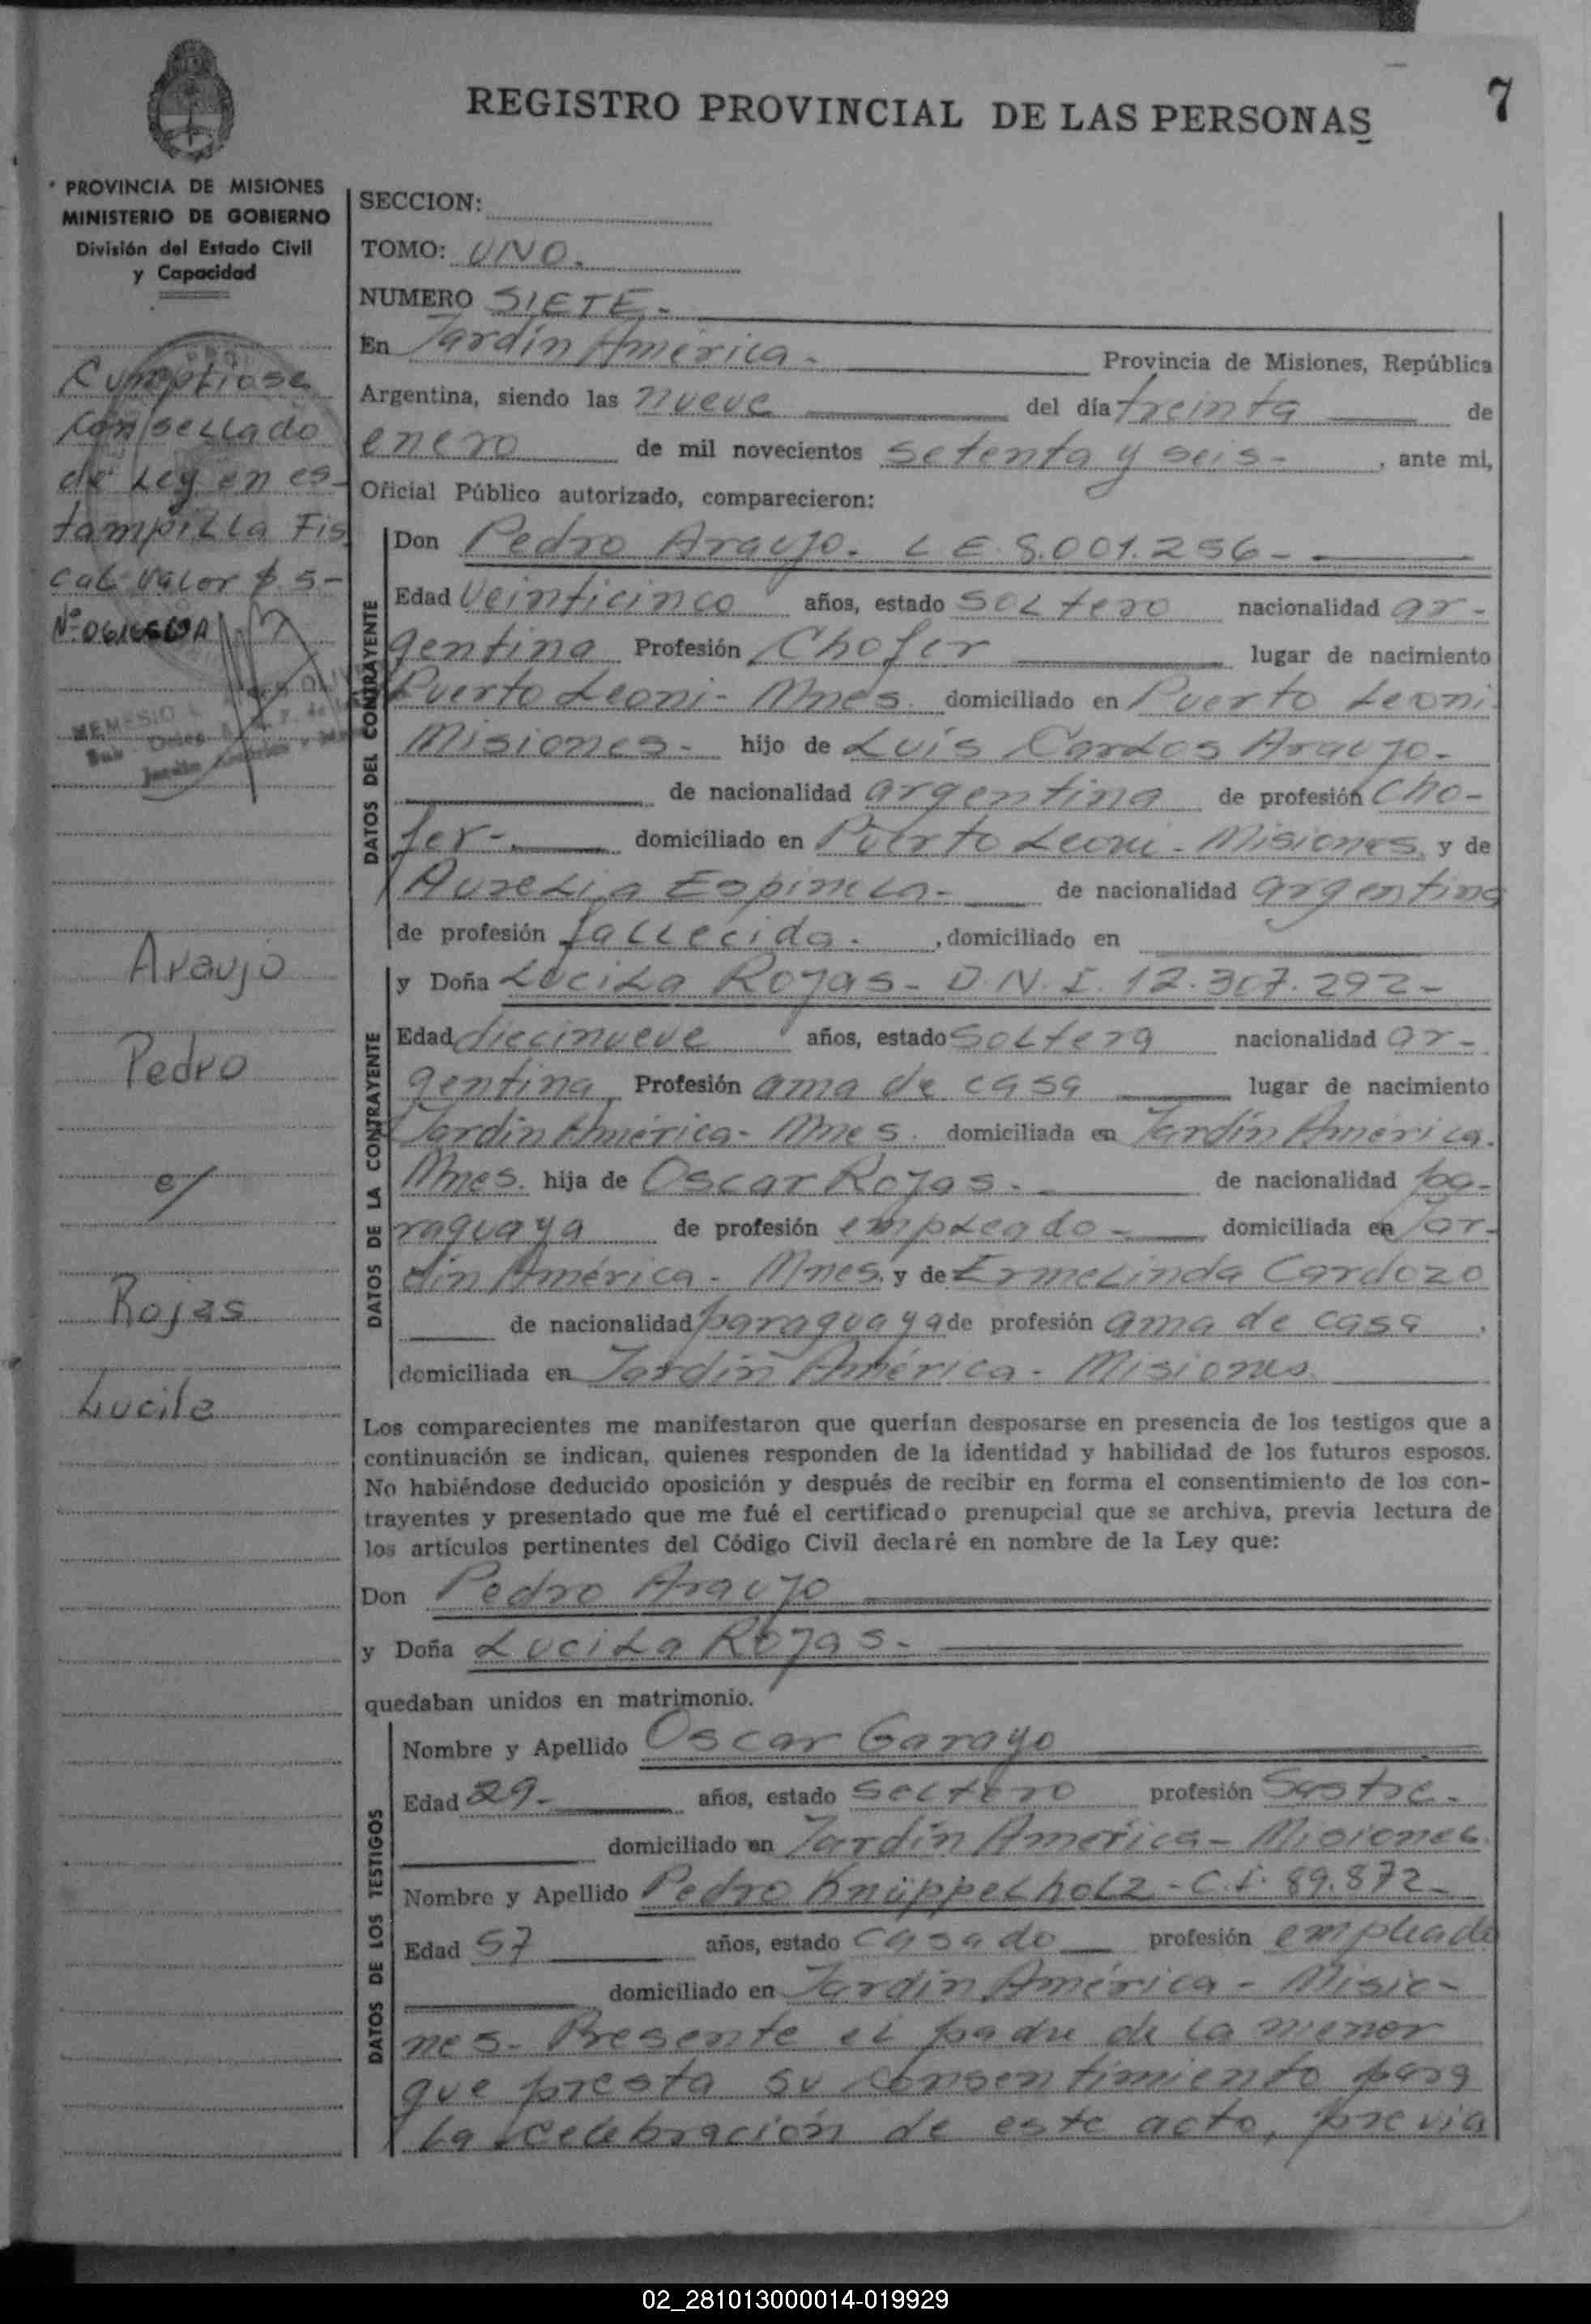 REGISTRO PROVINCIAL DE LAS PERSONAS
7
PROVINCIA DE MISIONES
MINISTERIO DE GOBIERNO
División del Estado Civil
y Capacidad
SECCION:
TOMO: UNO.
NUMERO SIETE-
En Jardín América- Provincia de Misiones, República
Argentina, siendo las nueve del día treinta de
enero de mil novecientos setenta y seis- , ante mi,
Oficial Público autorizado, comparecieron:
Cumplióse
con sellado
de Ley en es-
tampilla Fis
cal valor $ 5-
Araujo
Pedro
c/
Rojas
Lucila
DATOS DEL CONTRAYENTE
Don Pedro Araujo- L E 8.001.256-
Edad veinticinco años, estado soltero nacionalidad ar-
gentina Profesión Chofer lugar de nacimiento
Puerto Leoni- Mnes. domiciliado en Puerto Leoni-
Misiones- hijo de Luis Carlos Araujo-
de nacionalidad argentina de profesión cho-
fer- domiciliado en Puerto Leoni - Misiones, y de
Aurelia Espinola- de nacionalidad argentina
de profesión fallecida. , domiciliado en
DATOS DE LA CONTRAYENTE
y Doña Lucila Rojas- D.N.I. 12.307.292-
Edad diecinueve años, estado soltera nacionalidad ar-
gentina Profesión ama de casa lugar de nacimiento
Jardín América- Mnes. domiciliada en Jardín América.
Mnes. hija de Oscar Rojas- de nacionalidad pa-
raguaya de profesión empleado- domiciliada en Jar-
dín América- Mnes. y de Ermelinda Cardozo
de nacionalidad paraguaya de profesión ama de casa .
domiciliada en Jardín América - Misiones
Los comparecientes me manifestaron que querían desposarse en presencia de los testigos que a
continuación se indican, quienes responden de la identidad y habilidad de los futuros esposos.
No habiéndose deducido oposición y después de recibir en forma el consentimiento de los con-
trayentes y presentado que me fué el certificado prenupcial que se archiva, previa lectura de
los artículos pertinentes del Código Civil declaré en nombre de la Ley que:
Don Pedro Araujo
y Doña Lucila Rojas-
quedaban unidos en matrimonio.
DATOS DE LOS TESTIGOS
Nombre y Apellido Oscar Garayo
Edad 29- años, estado soltero profesión Sastre-
domiciliado en Jardín América- Misiones.
Nombre y Apellido Pedro Knüppelholz - C.I. 89.872-
Edad 57 años, estado casado profesión empleado
domiciliado en Jardín América - Misio-
nes- Presente el padre de la menor
que presta su consentimiento para
la celebración de este acto, previa
02_281013000014-019929